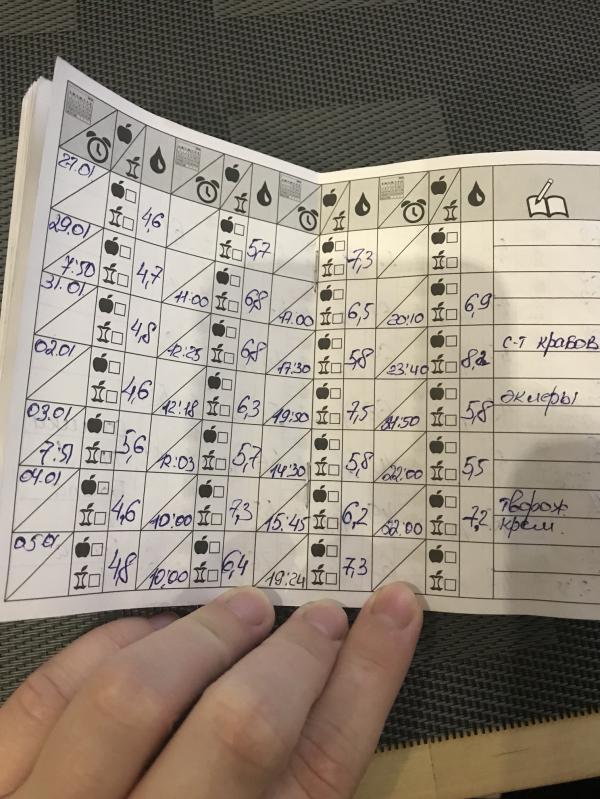 27.01 4,6 5,7 7,3
29.01 7:50 4,7 11:00 6,8 17.00 6,5 20:10 6,9
31.01 4,8 12:25 6,8 17:30 5,8 23:40 8,2 с-т крабов
02.01 4,6 12:18 6,3 19:50 7,5 21:50 5,8 эклеры
03.01 7:51 5,6 12:03 5,7 14:30 5,8 22:00 5,5
04.01 4,6 10:00 7,3 15:45 6,2 22:00 7,2 творож
крем.
05.01 4,8 10:00 6,4 19:24 7,3